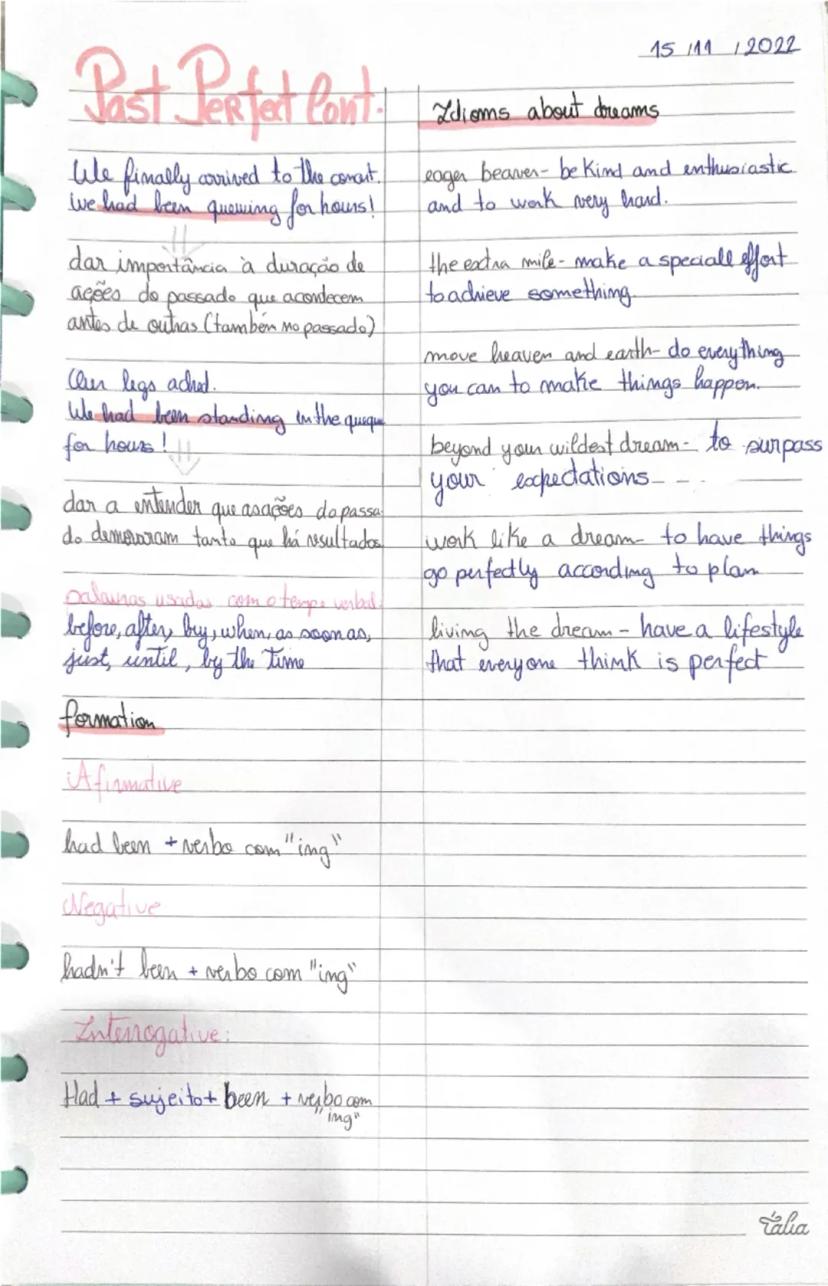 15/11/2022
Past Perfect Cont.
We finally arrived to the concert.
We had been queuing for hours!
dar importância à duração de
ações do passado que acondecem
antes de outras (também no passado)
Our legs ached.
We had been standing in the queque
for hours!
dar a entender que as ações do passa
do demoraram tanto que há resultados
palavras usadas com o tempo verbal:
before, after, by, when, as soon as,
just, until, by the time
formation
Afirmative
had been + verbo com "ing"
Negative
hadn't been + verbo com "ing"
Interrogative:
Had + sujeito + been + verbo com
"ing"
Idioms about dreams
eager beaver - be kind and enthusiastic
and to work very hard.
the extra mile - make a speciall effort
to achieve something.
move heaven and earth - do everything
you can to make things happen.
beyond your wildest dream - to surpass
your expectations
work like a dream - to have things
go perfectly according to plan
living the dream - have a lifestyle
that everyone think is perfect
Tália